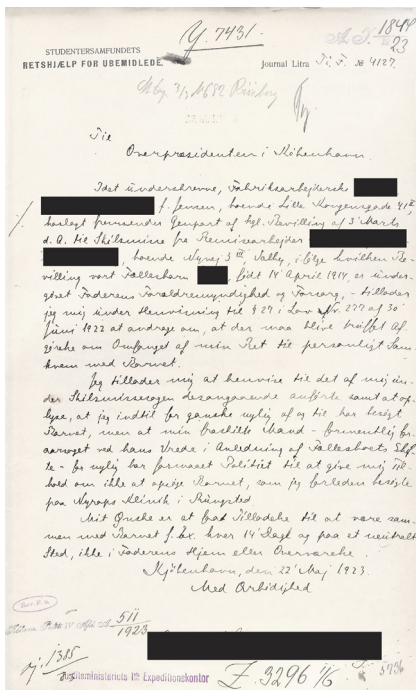 Y. 7431.
1844
23
STUDENTERSAMFUNDETS
RETSHJÆLP FOR UBEMIDLEDE.
Journal Litra Ti. F. № 4127.
Til
Overpræsidenten i København.
Idet undertegnede, Fabriksarbejderske
f. Jensen, boende Lille Kongensgade 41
herlagt fremsender Genpart af kgl. Bevilling af 3' Marts
d. A. til Skilsmisse fra Remisearbejder
boende Nyvej 3 III Valby, ifølge hvilken Be-
villing vort Fællesbarn født 14' April 1914, er under-
givet Faderens Forældremyndighed og Forsorg, - tillader
jeg mig under Henvisning til § 27 i Lov Nr. 277 af 30'
Juni 1922 at andrage om, at der maa blive truffet Af-
gørelse om Omfanget af min Ret til personligt Sam-
kvem med Barnet.
Jeg tillader mig at henvise til det af mig un-
der Skilsmissesagen desangaaende anførte samt at op-
lyse, at jeg indtil for ganske nylig af og til har besøgt
Barnet, men at min fraskilte Mand - formentlig for-
aarsaget ved hans Vrede i Anledning af Fællesboets Skif-
te - for nylig har formaaet Politiet til at give mig Til-
hold om ikke at opsøge Barnet, som jeg forleden besøgte
paa Nyrops Klinik i Rungsted
Mit Ønske er at faa Tilladelse til at være sam-
men med Barnet f. Ex. hver 14' Dag og paa et neutralt
Sted, ikke i Faderens Hjem eller Overværelse.
Kjøbenhavn, den 22' Maj 1923.
Med Ærbødighed
511
1923
1385
Justitsministeriets IIte Expeditionskontor
Z. 3296
5736